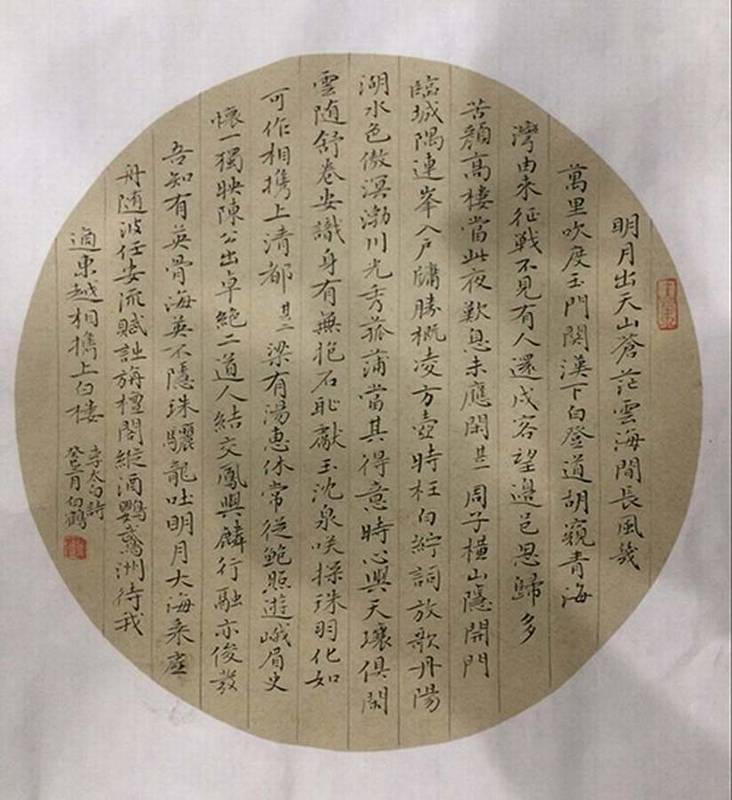 明月出天山蒼茫雲海間長風幾
萬里吹度玉門関漢下白登道胡窺青海
灣由来征戰不見有人還戍客望邊邑思歸多
苦顏高樓當此夜歎息未應閑其一周子橫山隱開門
臨城隅連峯入戶牖勝概凌方壺時枉白紵詞放歌丹陽
湖水色傲溟渤川光秀菰蒲當其得意時心與天壤俱閑
雲随舒卷安識身有無抱石恥獻玉沈泉咲探珠羽化如
可作相携上清都其二梁有湯惠休常從鮑照遊峨眉史
懷一獨映陳公出卓絕二道人結交鳳與麟行融亦俊發
吾知有英骨海英不隱珠驪龍吐明月大海乘虛
舟随波任安流賦詩旃檀閣縱酒鸚鵡洲待我
適東越相携上白樓
李太白詩